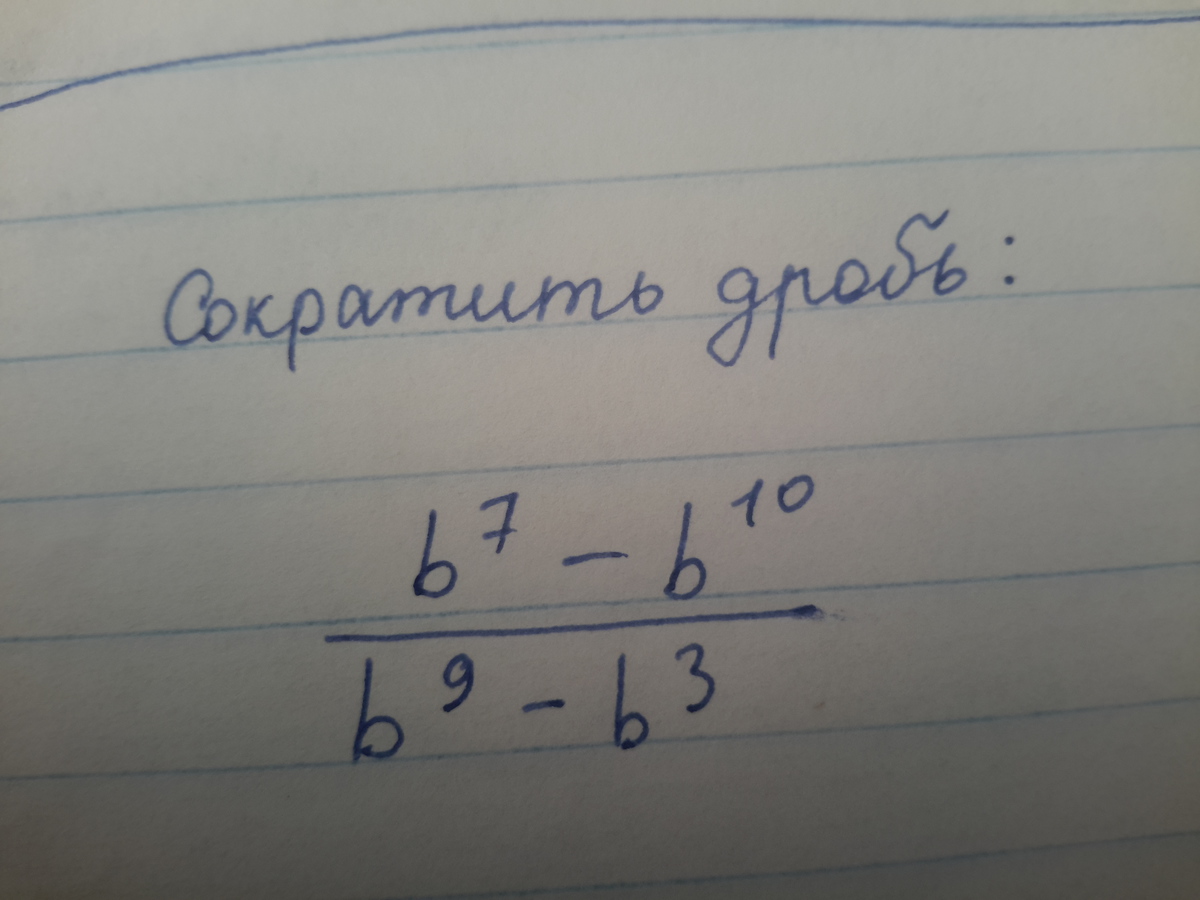 Сократить дробь:
b⁷ - b¹⁰
b⁹ - b³